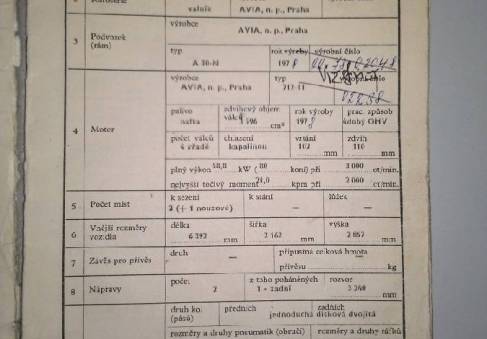 valník AVIA, n. p., Praha
3 Podvozek (rám) výrobce AVIA, n. p., Praha
typ rok výroby výrobní číslo
A 30-N 1978
výrobce typ
AVIA, n. p., Praha 712-11
4 Motor
palivo zdvihový objem válců rok výroby prac. způsob
nafta 3 596 cm³ 1978 4dobý OHV
počet válců chlazení vrtání zdvih
4 řadě kapalinou 102 mm 110 mm
plný výkon 58,8 kW ( 80 koní) při 3 000 ot/min.
nejvyšší točivý moment 24,0 kpm při 2 000 ot/min.
5 Počet míst k sezení k stání lůžek
2 (+ 1 nouzové) — —
6 Vnější rozměry vozidla délka šířka výška
6 392 mm 2 162 mm 2 857 mm
7 Závěs pro přívěs druh přípustná celková hmota
— přívěsu — kg
8 Nápravy počet z toho poháněných rozvor
2 1 - zadní mm
druh kol předních zadních
(pásů) jednoduchá disková dvojitá
rozměry a druhy pneumatik (obručí) rozměry a druhy ráfků